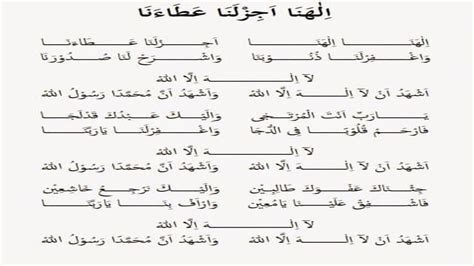 اِلٰهَنَا اَجِزْلَنَا عَطَاءَنَا
اِلٰهَنَا اِلٰهَنَا اَجِزْلَنَا عَطَاءَنَا
وَاغْفِرْلَنَا ذُنُوْبَنَا وَاشْرَحْ لَنَا صُدُوْرَنَا
لَآ اِلٰهَ اِلَّا اللهُ
اَشْهَدُ اَنْ لَآ اِلٰهَ اِلَّا اللهُ وَاَشْهَدُ اَنَّ مُحَمَّدَا رَسُوْلُ اللهُ
يَارَبِّ اَنْتَ الْمُرْتَجٰى وَاِلَيْكَ عَبْدُكَ قَدْلَجَا
فَارْحَمْ قُلُوْبًا فِى الدُّجَا وَاغْفِرْلَنَا يَارَبَّنَا
لَآ اِلٰهَ اِلَّا اللهُ
اَشْهَدُ اَنْ لَآ اِلٰهَ اِلَّا اللهُ وَاَشْهَدُ اَنَّ مُحَمَّدَا رَسُوْلُ اللهُ
جِئْنَاكَ عَفْوَكَ طَالِبِيْنَ وَاِلَيْكَ نَرْجِعُ خَاشِعِيْنَ
فَاشْفِقْ عَلَيْنَا يَامُعِيْنَ وَارْأَفْ بِنَا يَارَبَّنَا
لَآ اِلٰهَ اِلَّا اللهُ
اَشْهَدُ اَنْ لَآ اِلٰهَ اِلَّا اللهُ وَاَشْهَدُ اَنَّ مُحَمَّدَا رَسُوْلُ اللهُ